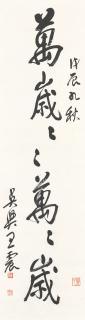 萬歲〻〻萬〻歲
戊辰孔秋
吳興王震